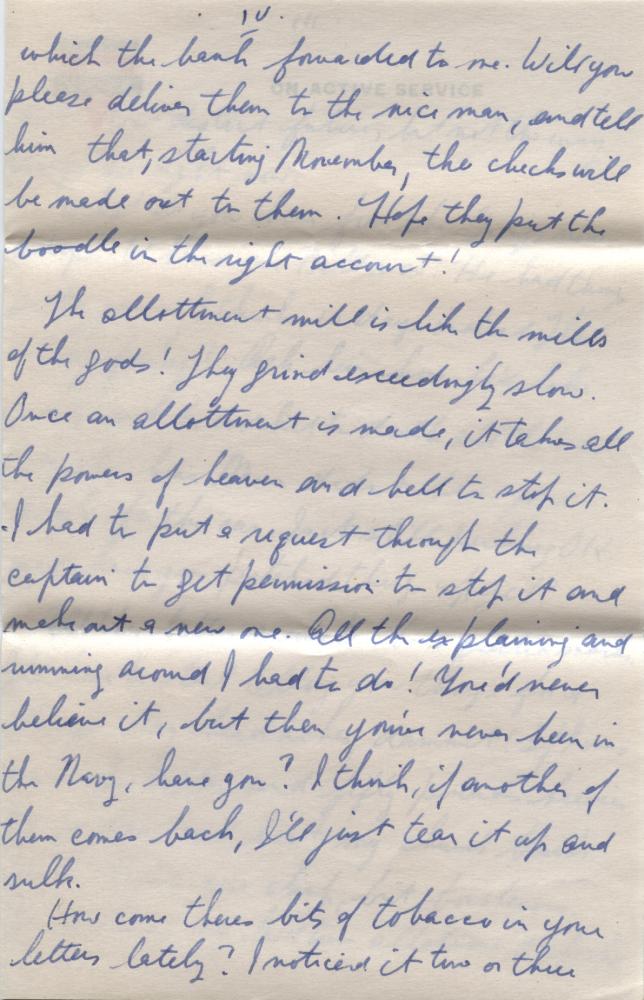 IV.
which the bank forwarded to me. Will you
please deliver them to the nice man, and tell
him that, starting November, the checks will
be made out to them. Hope they put the
boodle in the right account!
The allottment mill is like the mills
of the gods! They grind exceedingly slow.
Once an allottment is made, it takes all
the powers of heaven and hell to stop it.
I had to put a request through the
captain to get permission to stop it and
make out a new one. All the explaining and
running around I had to do! You'd never
believe it, but then you've never been in
the Navy, have you? I think, if another of
them comes back, I'll just tear it up and
sulk.
How come theres bits of tobacco in your
letters lately? I noticed it two or three
ON ACTIVE SERVICE